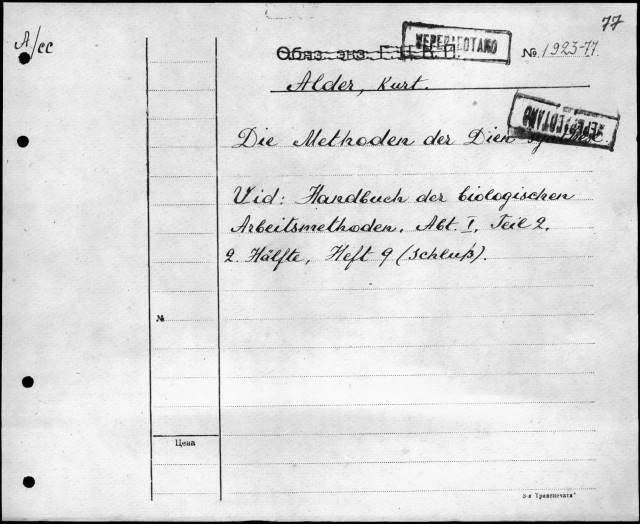 77
A/cc
ПЕРЕПЛЕТАНО
Обяз. экз. Г.Ц.К.П.
№ 1923-77.
Alder, Kurt.
ПЕРЕПЛЕТАНО
Die Methoden der Dien synthese.
Vid: Handbuch der biologischen
Arbeitsmethoden. Abt. I, Teil 2,
2. Hälfte, Heft 9 (Schluß).
№
Цена
3-я Транспечать"